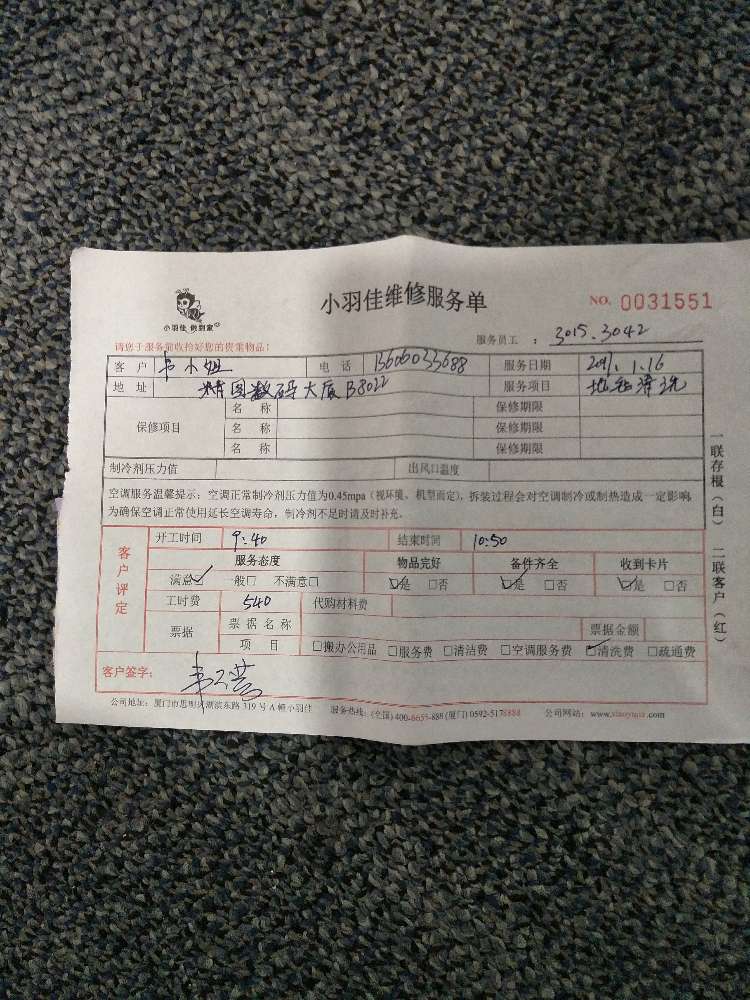 小羽佳 做到家
小羽佳维修服务单
NO. 0031551
请您于服务前收拾好您的贵重物品!
服务员工 : 3015.3042
客户 韦小姐 电话 13606033688 服务日期 1.16
地址 精图数码大厦B8022 服务项目 地毯清洗
保修项目 名称 保修期限
名称 保修期限
名称 保修期限
制冷剂压力值 出风口温度
空调服务温馨提示:空调正常制冷剂压力值为0.45mpa(视环境、机型而定),拆装过程会对空调制冷或制热造成一定影响
为确保空调正常使用延长空调寿命,制冷剂不足时请及时补充。
客户评定
开工时间 9:40 结束时间 10:50
服务态度 物品完好 备件齐全 收到卡片
满意☑ 一般□ 不满意□ ☑是 □否 ☑是 □否 ☑是 □否
工时费 540 代购材料费
票据 票据名称 票据金额
项目 □搬办公用品 □服务费 □清洁费 □空调服务费 ☑清洗费 □疏通费
客户签字:
公司地址:厦门市思明区湖滨东路319号A幢小羽佳 服务热线:(全国)400-8655-888 (厦门)0592-5178888 公司网站:www.xiaoyujia.com
一联存根(白) 二联客户(红)